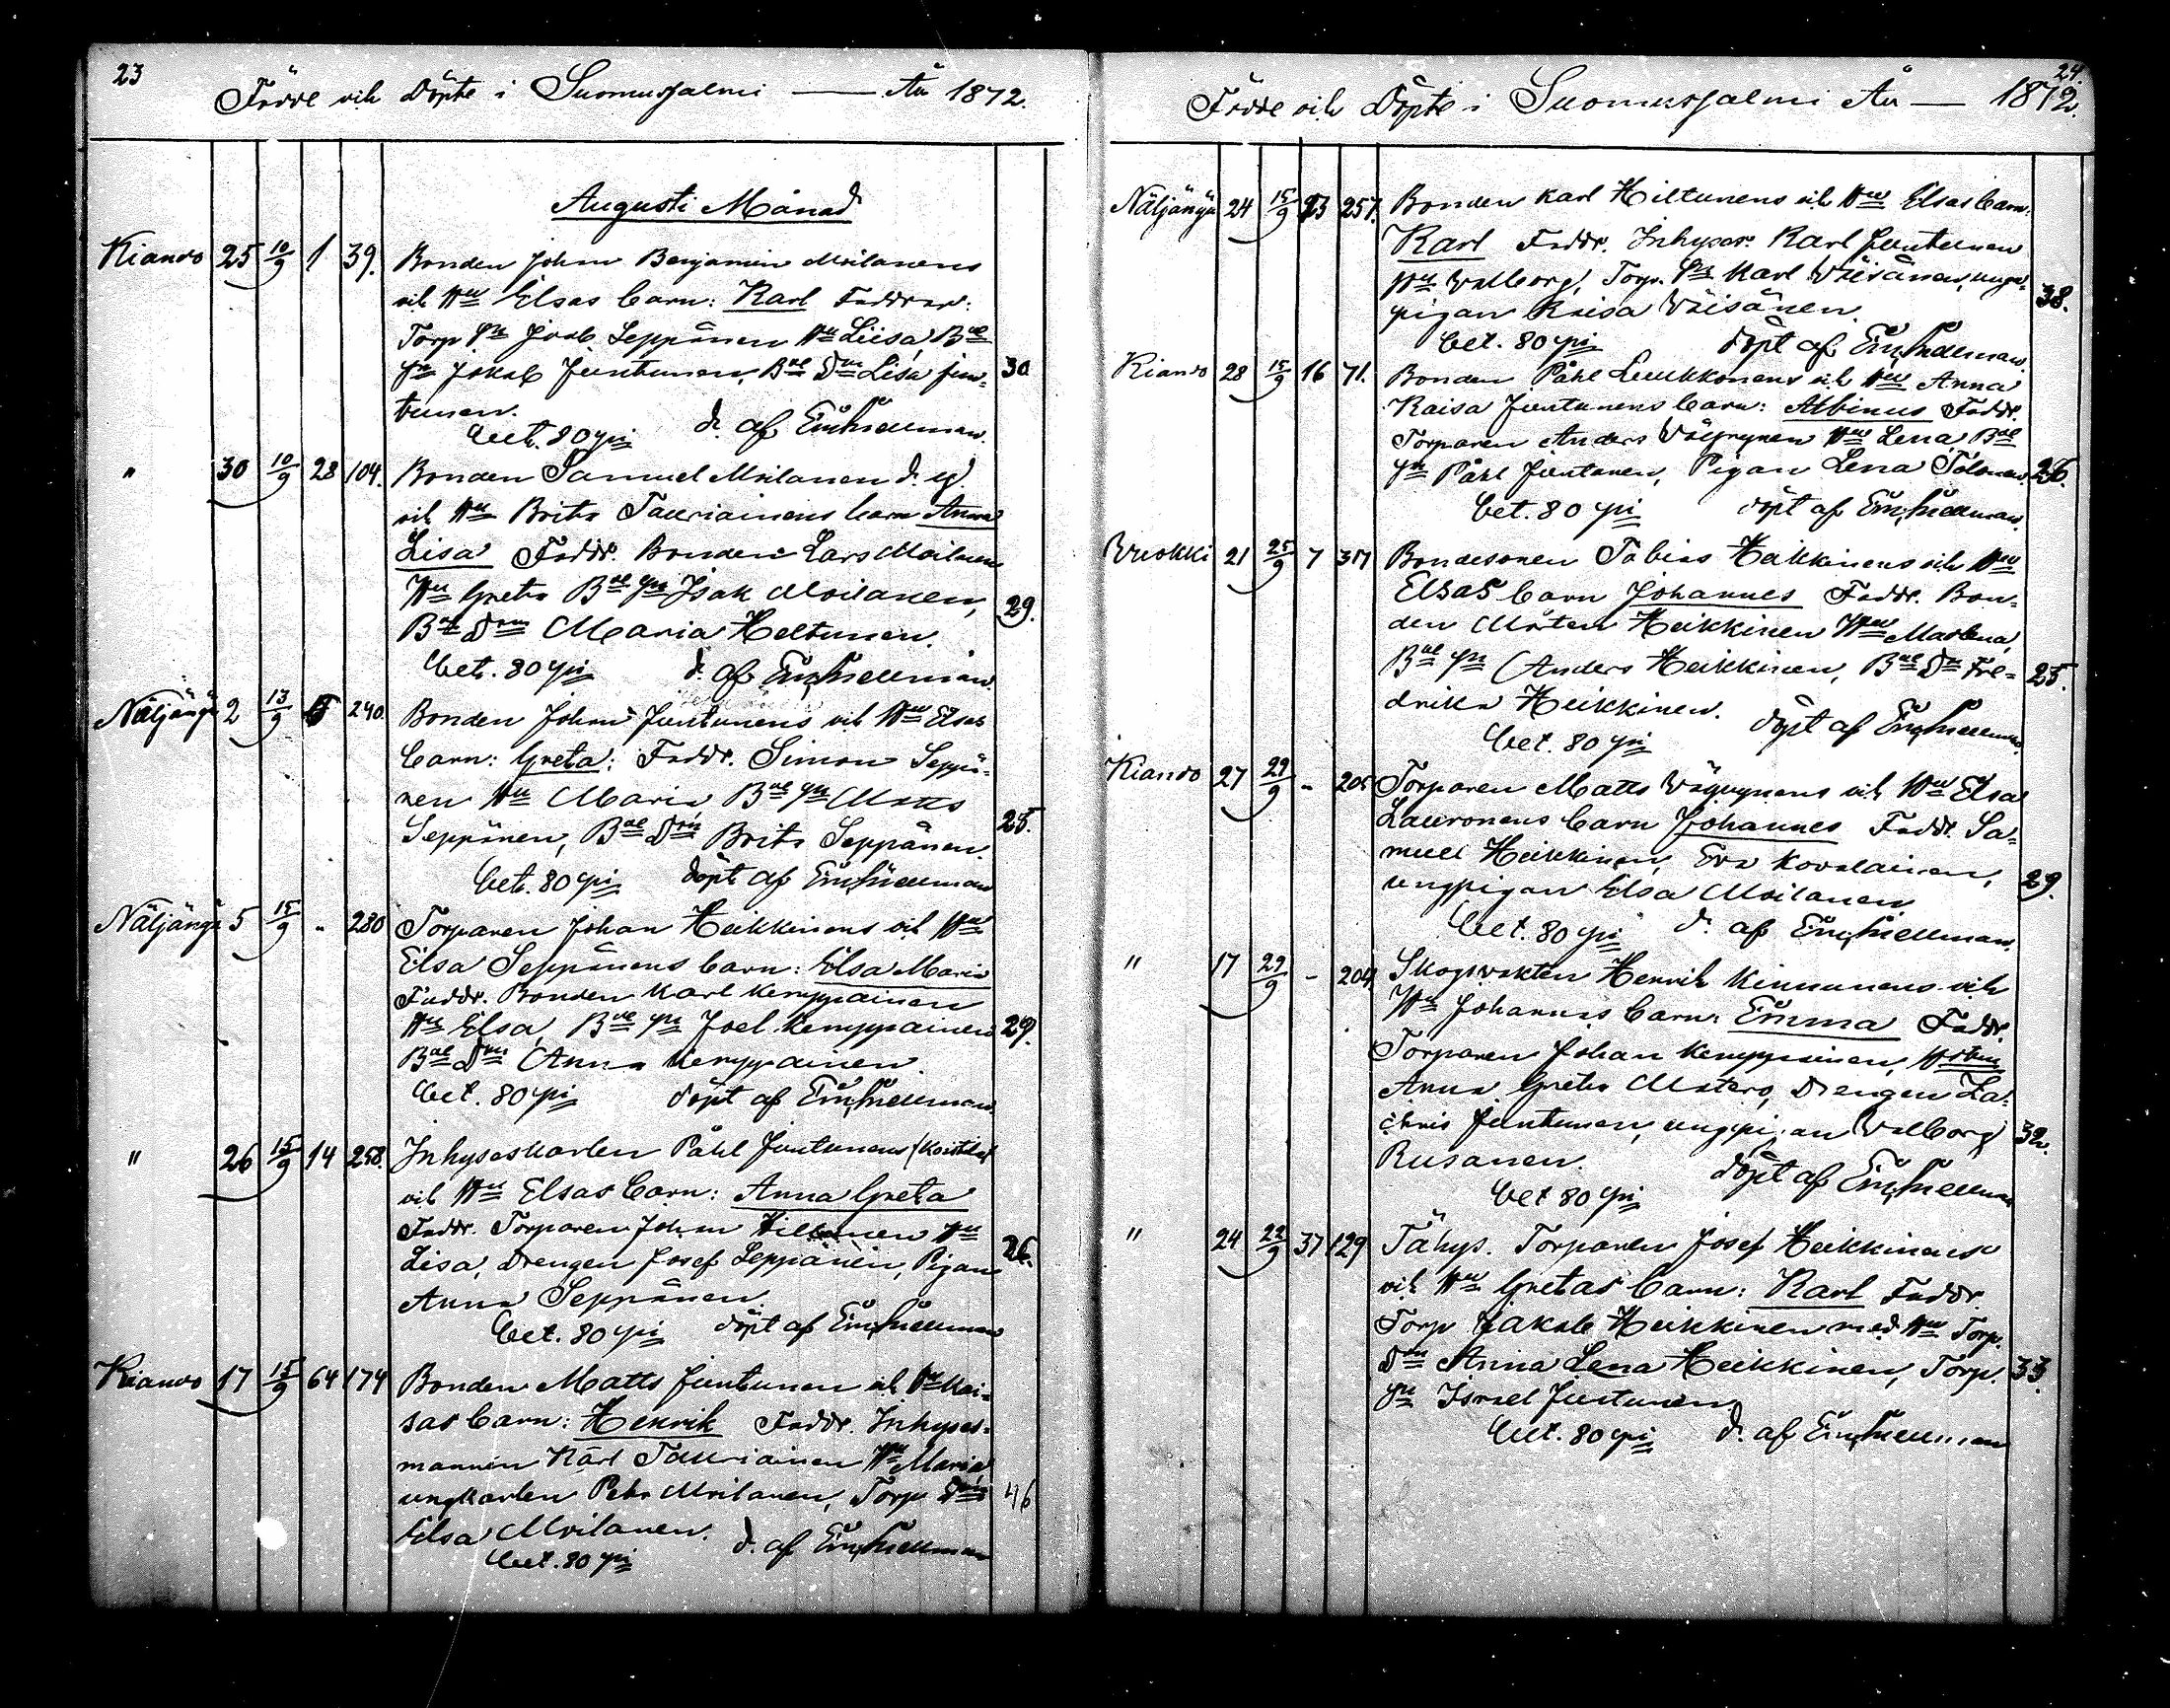 23
Födde och Döpte i Suomusjalmi — År 1872.
Augusti Månad
Kiando 25 10/9 1 39. Bonden Johan Benjamin Moilanens
och Hu Elsas barn: Karl Faddrar:
Torp Sn Joab Seppänen Hu Liisa, Bde
Sn Jakob Juntunen, Bde Dr Lisa Jun-
tunen. 30
bet. 80 pi d. af Em. Snellman.
" 30 10/9 28 104. Bonden Samuel Moilanen d. y.
och Hu Brita Tauriainens barn Anna
Lisa Faddr. Bonden Lars Moilanen
Hu Greta Bde Sn Isak Moilanen,
Bde Drn Maria Heltunen. 29.
bet. 80 pi d. af Em. Snellman.
Näljängä 2 13/9 5 240. Bonden Johan Juntunens och Hu Elsas
barn: Greta: Faddr. Simon Seppä-
nen Hu Maria Bde Sn Matts
Seppänen, Bde Drn Brita Seppänen. 25.
bet. 80 pi döpt af Em. Snellman
Näljängä 5 15/9 - 280 Torparen Johan Heikkinens och Hu
Elsa Seppänens barn: Elsa Maria
Faddr. Bonden Karl Kemppainen
Hu Elsa, Bde Sn Joel Kemppainen 29.
Bde Drn Anna Kemppainen.
bet. 80 pi döpt af Em. Snellman.
" 26 15/9 14 258. Inhyseskarlen Påhl Juntunens (Koistila)
och Hu Elsas barn: Anna Greta
Faddr. Torparen Johan Hiltunen Hu
Lisa, Drengen Josef Seppänen, Pigan 26.
Anna Seppänen
bet. 80 pi döpt af Em. Snellman
Kiando 17 15/9 64 174 Bonden Matts Juntunen och Hu Kai-
sas barn: Henrik Faddr. Inhyses-
mannen Karl Tauriainen Hu Maria,
ungkarlen Petr Moilanen, Torp Drn 46
Elsa Moilanen. d. af Em. Snellman
bet. 80 pi
24.
Födde och Döpte i Suomusjalmi År — 1872.
Näljängä 24 15/9 23 257. Bonden Karl Hiltunens och Hu Elsas barn:
Karl Faddr. Inhyses. Karl Juntunen
Hu Walborg, Torp. Sn Karl Väisänen, ung-
pigan Kaisa Väisänen. 38.
bet. 80 pi döpt af Em. Snellman.
Kiando 28 15/9 16 71. Bonden Påhl Luukkonens och Hu Anna
Kaisa Juntunens barn: Albinus Faddr.
Torparen Anders Väyrynen Hu Lena, Bde
Sn Påhl Juntunen, Pigan Lena Tolonen. 26.
bet. 80 pi döpt af Em. Snellman.
Vuokki 21 25/9 7 317 Bondesonen Tobias Heikkinens och Hu
Elsas barn Johannes Faddr. Bon-
den Mårten Heikkinen Hu Marlena,
Bde Sn Anders Heikkinen, Bde Dr Fre- 25.
drika Heikkinen. döpt af Em. Snellman
bet. 80 pi
Kiando 27 29/9 - 205 Torparen Matts Väyrynens och Hu Elsa
Lauronens barn Johannes Faddr. Sa-
muel Heikkinen, Eva Kovalainen,
ungpigan Elsa Moilanen 29.
bet. 80 pi d. af Em. Snellman.
" 17 29/9 - 204 Skogsvakten Henrik Kinnunens och
Hu Johannas barn: Emma Faddr.
Torparen Johan Kemppainen,
Anna Greta Matero, Drengen Za-
chris Juntunen, ungpigan Walborg 32.
Rusanen. döpt af Em. Snellman
bet 80 pi
" 24 22/9 37 129 Tähys. Torparen Josef Heikkinens
och Hu Gretas barn: Karl Faddr.
Torp Jakob Heikkinen med Hu Torp.
Drn Anna Lena Heikkinen, Torp. 33.
Sn Israel Juntunen.
bet. 80 pi d. af Em. Snellman